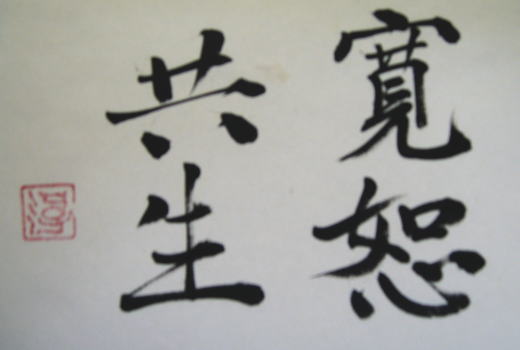 寛恕
共生